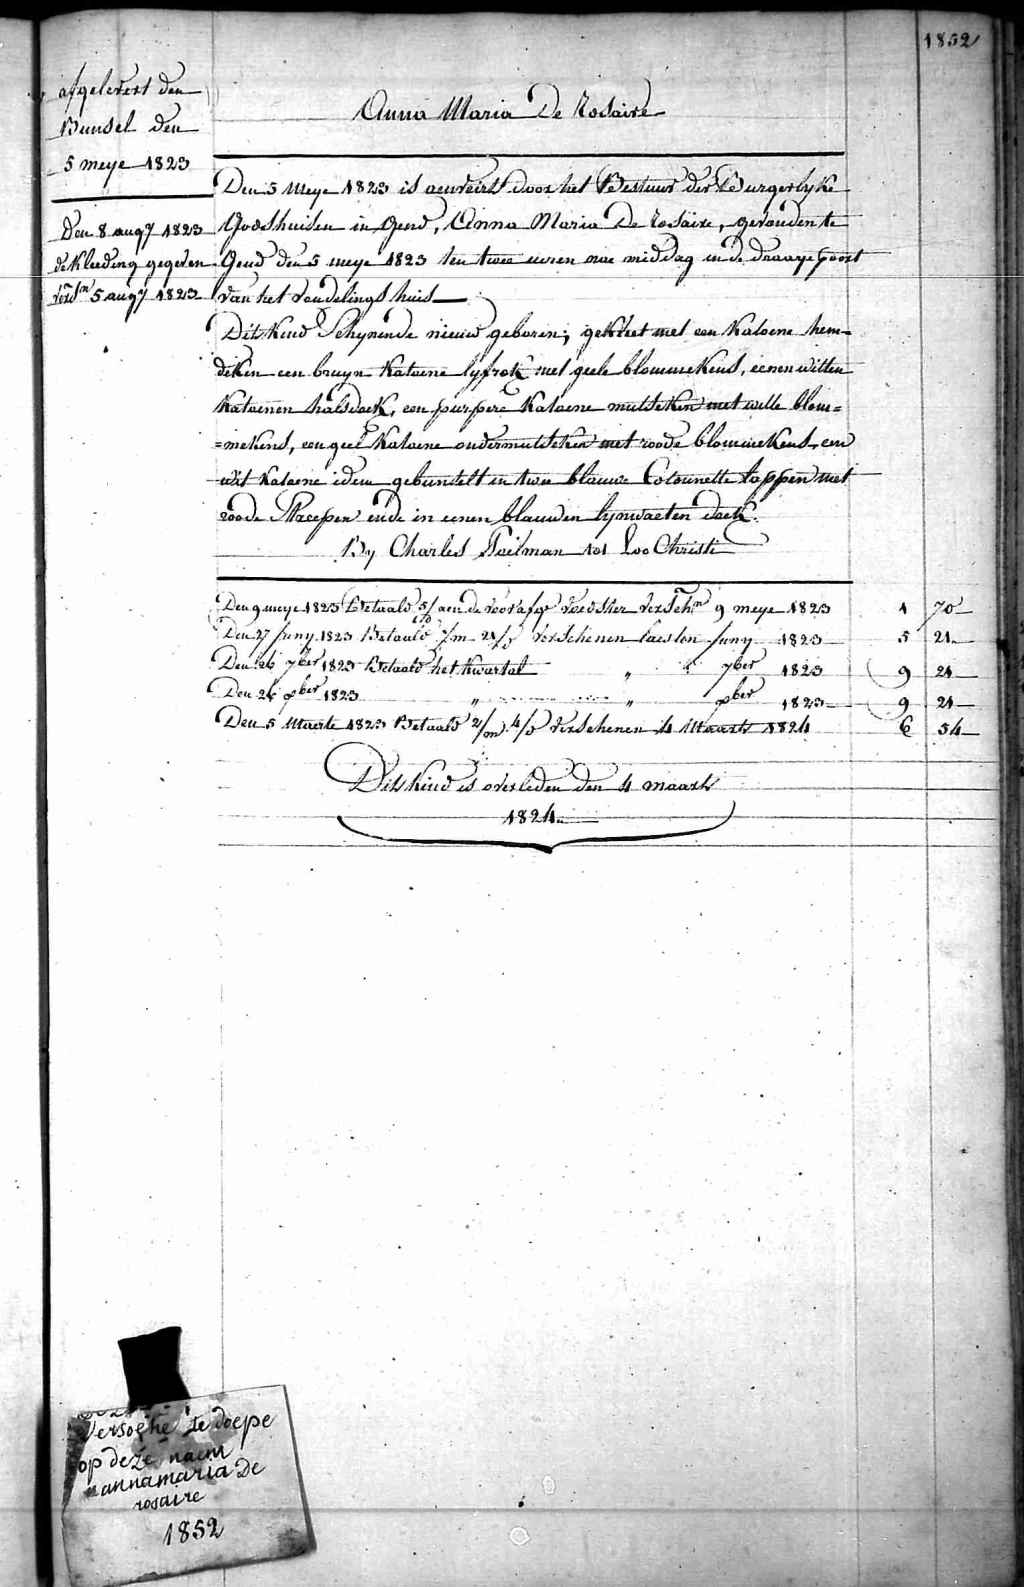 1852
afgelevert den
Bunsel den
5 meye 1823
Den 8 augt 1823
de kleeding gegeven
versn 5 augt 1823
Anna Maria De Rosaire
Den 5 Meye 1823 is aenveirt door het Bestuur der Burgerlyke
Godshuisen in Gend, Anna Maria De Rosaire, gevonden te
Gend den 5 meye 1823 ten twee uren nae middag in de draaye poort
van het vondelings huis
Dit kind Schynende nieuw geboren; gekleet met een katoene hem=
deken een bruyn katoene lyfrok met geele blommekens, eenen witten
katoenen halsdoek, een purpere katoene mutseken met witte blom=
=mekens, een geel katoene ondermutseken met roode blommekens, een
wit katoene idem gebunselt in twee blauwe Cotounette lappen met
roode Streepen ende in eenen blauwen lynwaeten doek.
By Charles Poelman tot Loo Christi
Den 9 meye 1823 Betaald aen de voorafge voedster versehn 9 meye 1823 1 70
Den 27 Juny 1823 Betaald 1/m 21/d verschenen laesten Juny 1823 5 21
Den 26 7ber 1823 Betaald het kwartal " " 7ber 1823 9 21
Den 24 xber 1823 " " xber 1823 9 21
Den 5 Maarte 1823 Betaald 2/m 4/d verschenen 4 Maarts 1824 6 54
Dit kind is overleden den 4 maart
1824
Versoehe te doepe
op deze naem
annamaria De
rosaire
1852